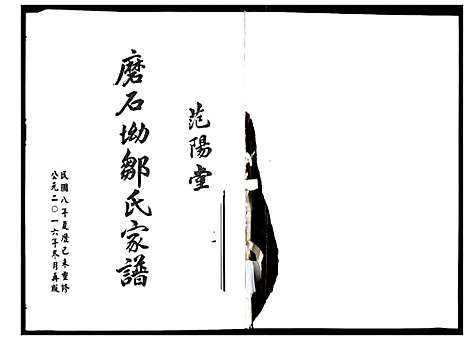 范陽堂
磨石坳鄒氏家譜
民國八年夏歷己未重修
公元二〇一六年冬月再版